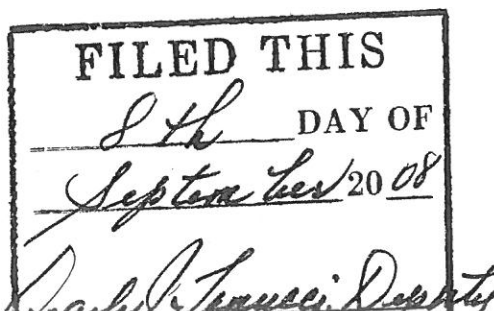 FILED THIS
8th DAY OF
September 20 08
Deputy